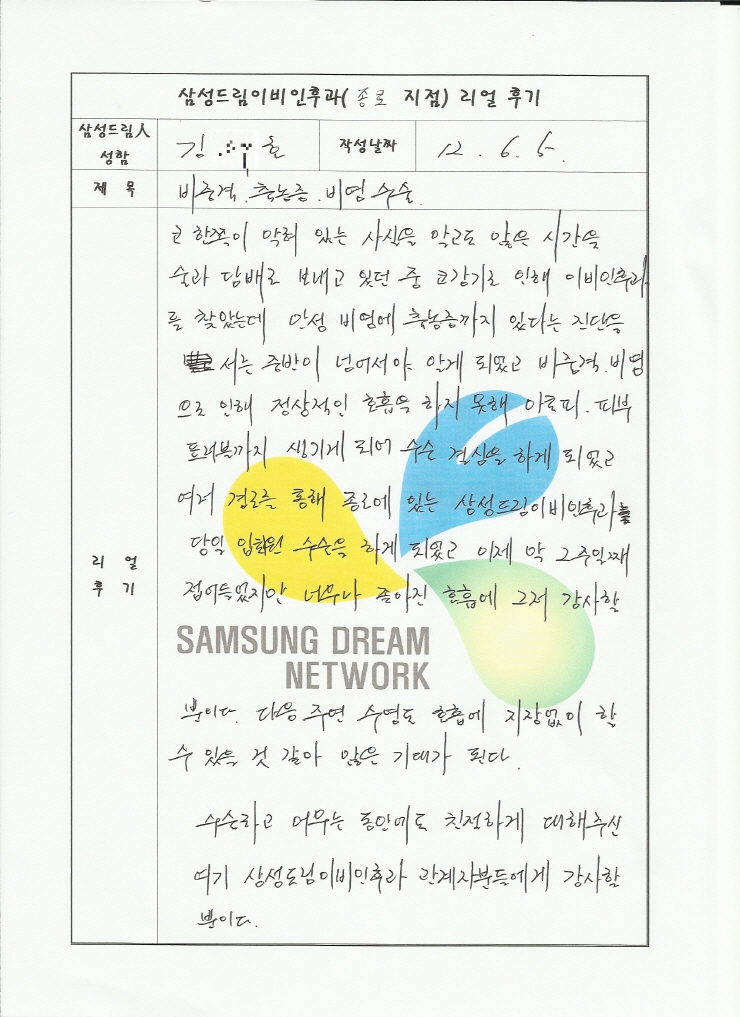 삼성드림이비인후과( 종로 지점) 리얼 후기
삼성드림人
성함
김 호
작성날짜
12. 6. 5.
제 목
비중격.축농증.비염 수술.
코 한쪽이 막혀 있는 사실을 알고도 많은 시간을
술과 담배로 보내고 있던 중 코감기로 인해 이비인후과
를 찾았는데 만성 비염에 축농증까지 있다는 진단을
서른 중반이 넘어서야 알게 되었고 비중격.비염
으로 인해 정상적인 호흡을 하지 못해 아토피. 피부
트러블까지 생기게 되어 수술 결심을 하게 되었고
여러 경로를 통해 종로에 있는 삼성드림이비인후과를
당일 입퇴원 수술을 하게 되었고 이제 막 2주일째
접어들었지만 너무나 좋아진 호흡에 그저 감사할
SAMSUNG DREAM
NETWORK
뿐이다. 다음 주엔 수영도 호흡에 지장없이 할
수 있을 것 같아 많은 기대가 된다.
수술하고 머무는 동안에도 친절하게 대해주신
여기 삼성드림이비인후과 관계자분들에게 감사할
뿐이다.
리 얼
후 기